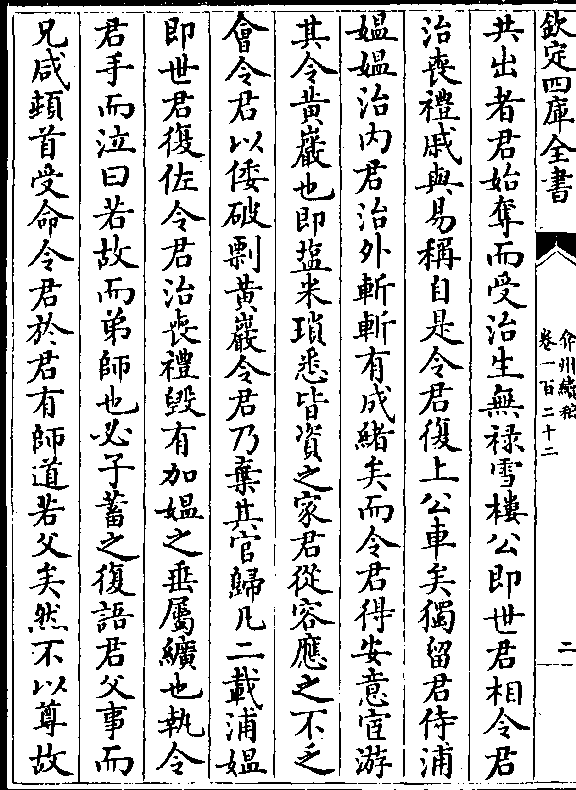 欽定四庫全書
弇州續稿
卷一百二十二
二
共出者君始奪而受治生無祿雪樓公即世君相令君
治喪禮戚與易稱自是令君復上公車矣獨留君侍浦
媼媼治内君治外斬斬有成緒矣而令君得安意宦游
其令黃巖也即鹽米瑣悉皆資之家君從容應之不乏
會令君以倭破剽黃巖令君乃棄其官歸凡二載浦媼
即世君復佐令君治喪禮毀有加媼之垂屬纊也執令
君手而泣曰若故而弟師也必子蓄之復語君父事而
兄咸頓首受命令君於君有師道若父矣然不以尊故